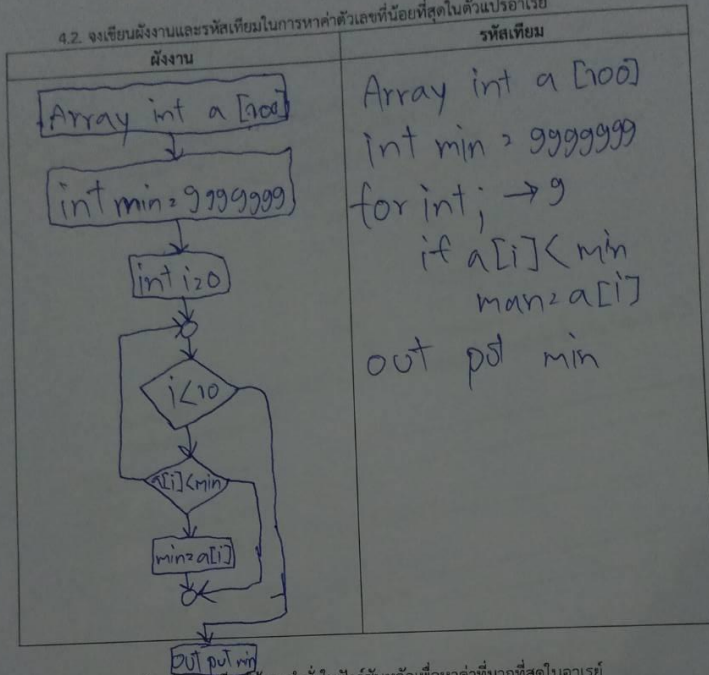 4.2. จงเขียนผังงานและรหัสเทียมในการหาค่าตัวเลขที่น้อยที่สุดในตัวแปรอาเรย์
ผังงาน
Array int a [100]
int min = 9999999
int i=0
i<10
a[i]<min
min=a[i]
out put min
รหัสเทียม
Array int a [100]
int min = 9999999
for int ; → 9
if a[i] < min
man= a[i]
out put min
เพื่อหาค่าที่มากที่สุดในอาเรย์